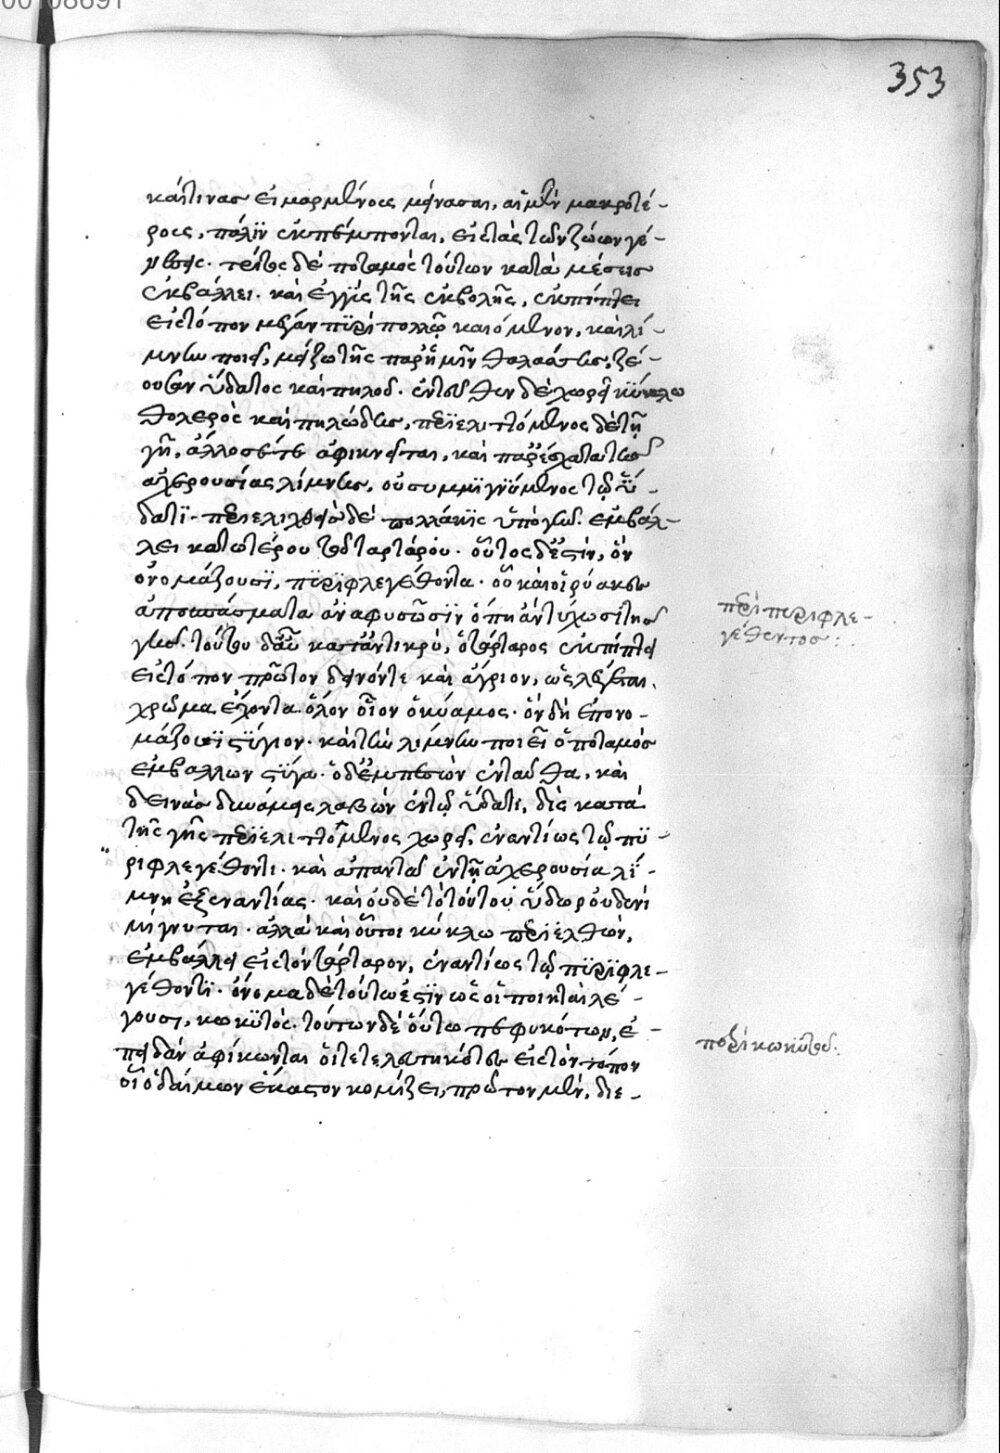 353
καί τινας εἱμαρμένους μείνασαι, αἱ μὲν μακροτέ-
ρους, πάλιν ἐκπέμπονται, εἰς τὰς τῶν ζώων γε-
νέσεις. τρίτος δὲ ποταμὸς τούτων κατὰ μέσον
ἐκβάλλει. καὶ ἐγγὺς τῆς ἐκβολῆς, ἐκπίπτει
εἰς τόπον μέγαν πυρὶ πολλῷ καιόμενον, καὶ λί-
μνην ποιεῖ, μείζω τῆς παρ' ἡμῖν θαλάσσης, ζέ-
ουσαν ὕδατος καὶ πηλοῦ. ἐντεῦθεν δὲ χωρεῖ κύκλῳ
θολερὸς καὶ πηλώδης, περιελιττόμενος δὲ τῇ
γῇ, ἄλλοσέ τε ἀφικνεῖται, καὶ παρέσχατα τῆς
ἀχερουσίας λίμνης, οὐ συμμιγνύμενος τῷ ὕ-
δατι. περιελιχθεὶς δὲ πολλάκις ὑπὸ γῆς. ἐμβάλ-
λει κατωτέρου τοῦ ταρτάρου. οὗτος δ' ἐστὶν, ὃν
ὀνομάζουσι, πυριφλεγέθοντα. οὗ καὶ οἱ ῥύακες
ἀποσπάσματα ἀναφυσῶσιν ὅπη ἂν τύχωσι τῆς
γῆς. τούτου δ' αὖ καταντικρὺ, ὁ τέταρτος ἐκπίπτει
εἰς τόπον πρῶτον δεινόν τε καὶ ἄγριον, ὡς λέγεται.
χρῶμα ἔχοντα ὅλον οἷον ὁ κύαμος. ὃν δὴ ἐπονο-
μάζουσι στύγιον. καὶ τὴν λίμνην ποιεῖ ὁ ποταμὸς
ἐμβάλλων στύγα. ὁ δ' ἐμπεσὼν ἐνταῦθα, καὶ
δεινὰς δυνάμεις λαβὼν ἐν τῷ ὕδατι, δὺς κατὰ
τῆς γῆς περιελιττόμενος χωρεῖ, ἐναντίως τῷ πυ-
ριφλεγέθοντι. καὶ ἀπαντᾷ ἐν τῇ ἀχερουσίᾳ λί-
μνῃ ἐξ ἐναντίας. καὶ οὐδὲ τὸ τούτου ὕδωρ οὐδενὶ
μίγνυται. ἀλλὰ καὶ οὗτος κύκλῳ περιελθὼν,
ἐμβάλλει εἰς τὸν τάρταρον, ἐναντίως τῷ πυριφλε-
γέθοντι. ὄνομα δὲ τούτῳ ἐστὶν ὡς οἱ ποιηταὶ λέ-
γουσι, κωκυτός. τούτων δὲ οὕτω πεφυκότων, ἐ-
πειδὰν ἀφίκωνται οἱ τετελευτηκότες εἰς τὸν τόπον
οἷ ὁ δαίμων ἕκαστον κομίζει, πρῶτον μὲν, διε-
περὶ περιφλε-
γέθοντος:
περὶ κωκυτοῦ: